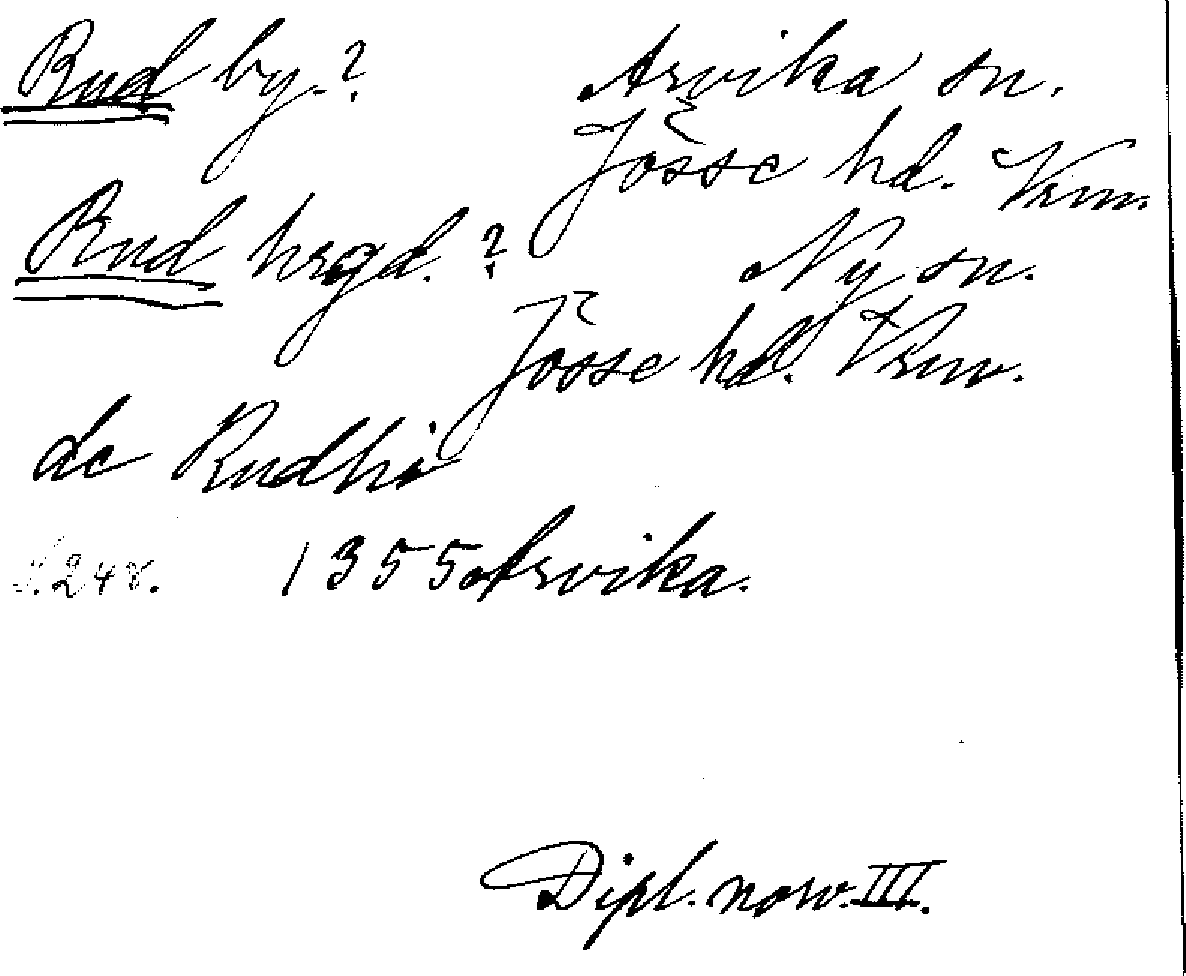 Rud by.? Arvika sn.
Jösse hd. Vrm.
Rud hrgd.? Ny sn.
Jösse hd. Vrm.
de Rudhi
S. 248. 1355 Arvika.
Dipl. norv. III.